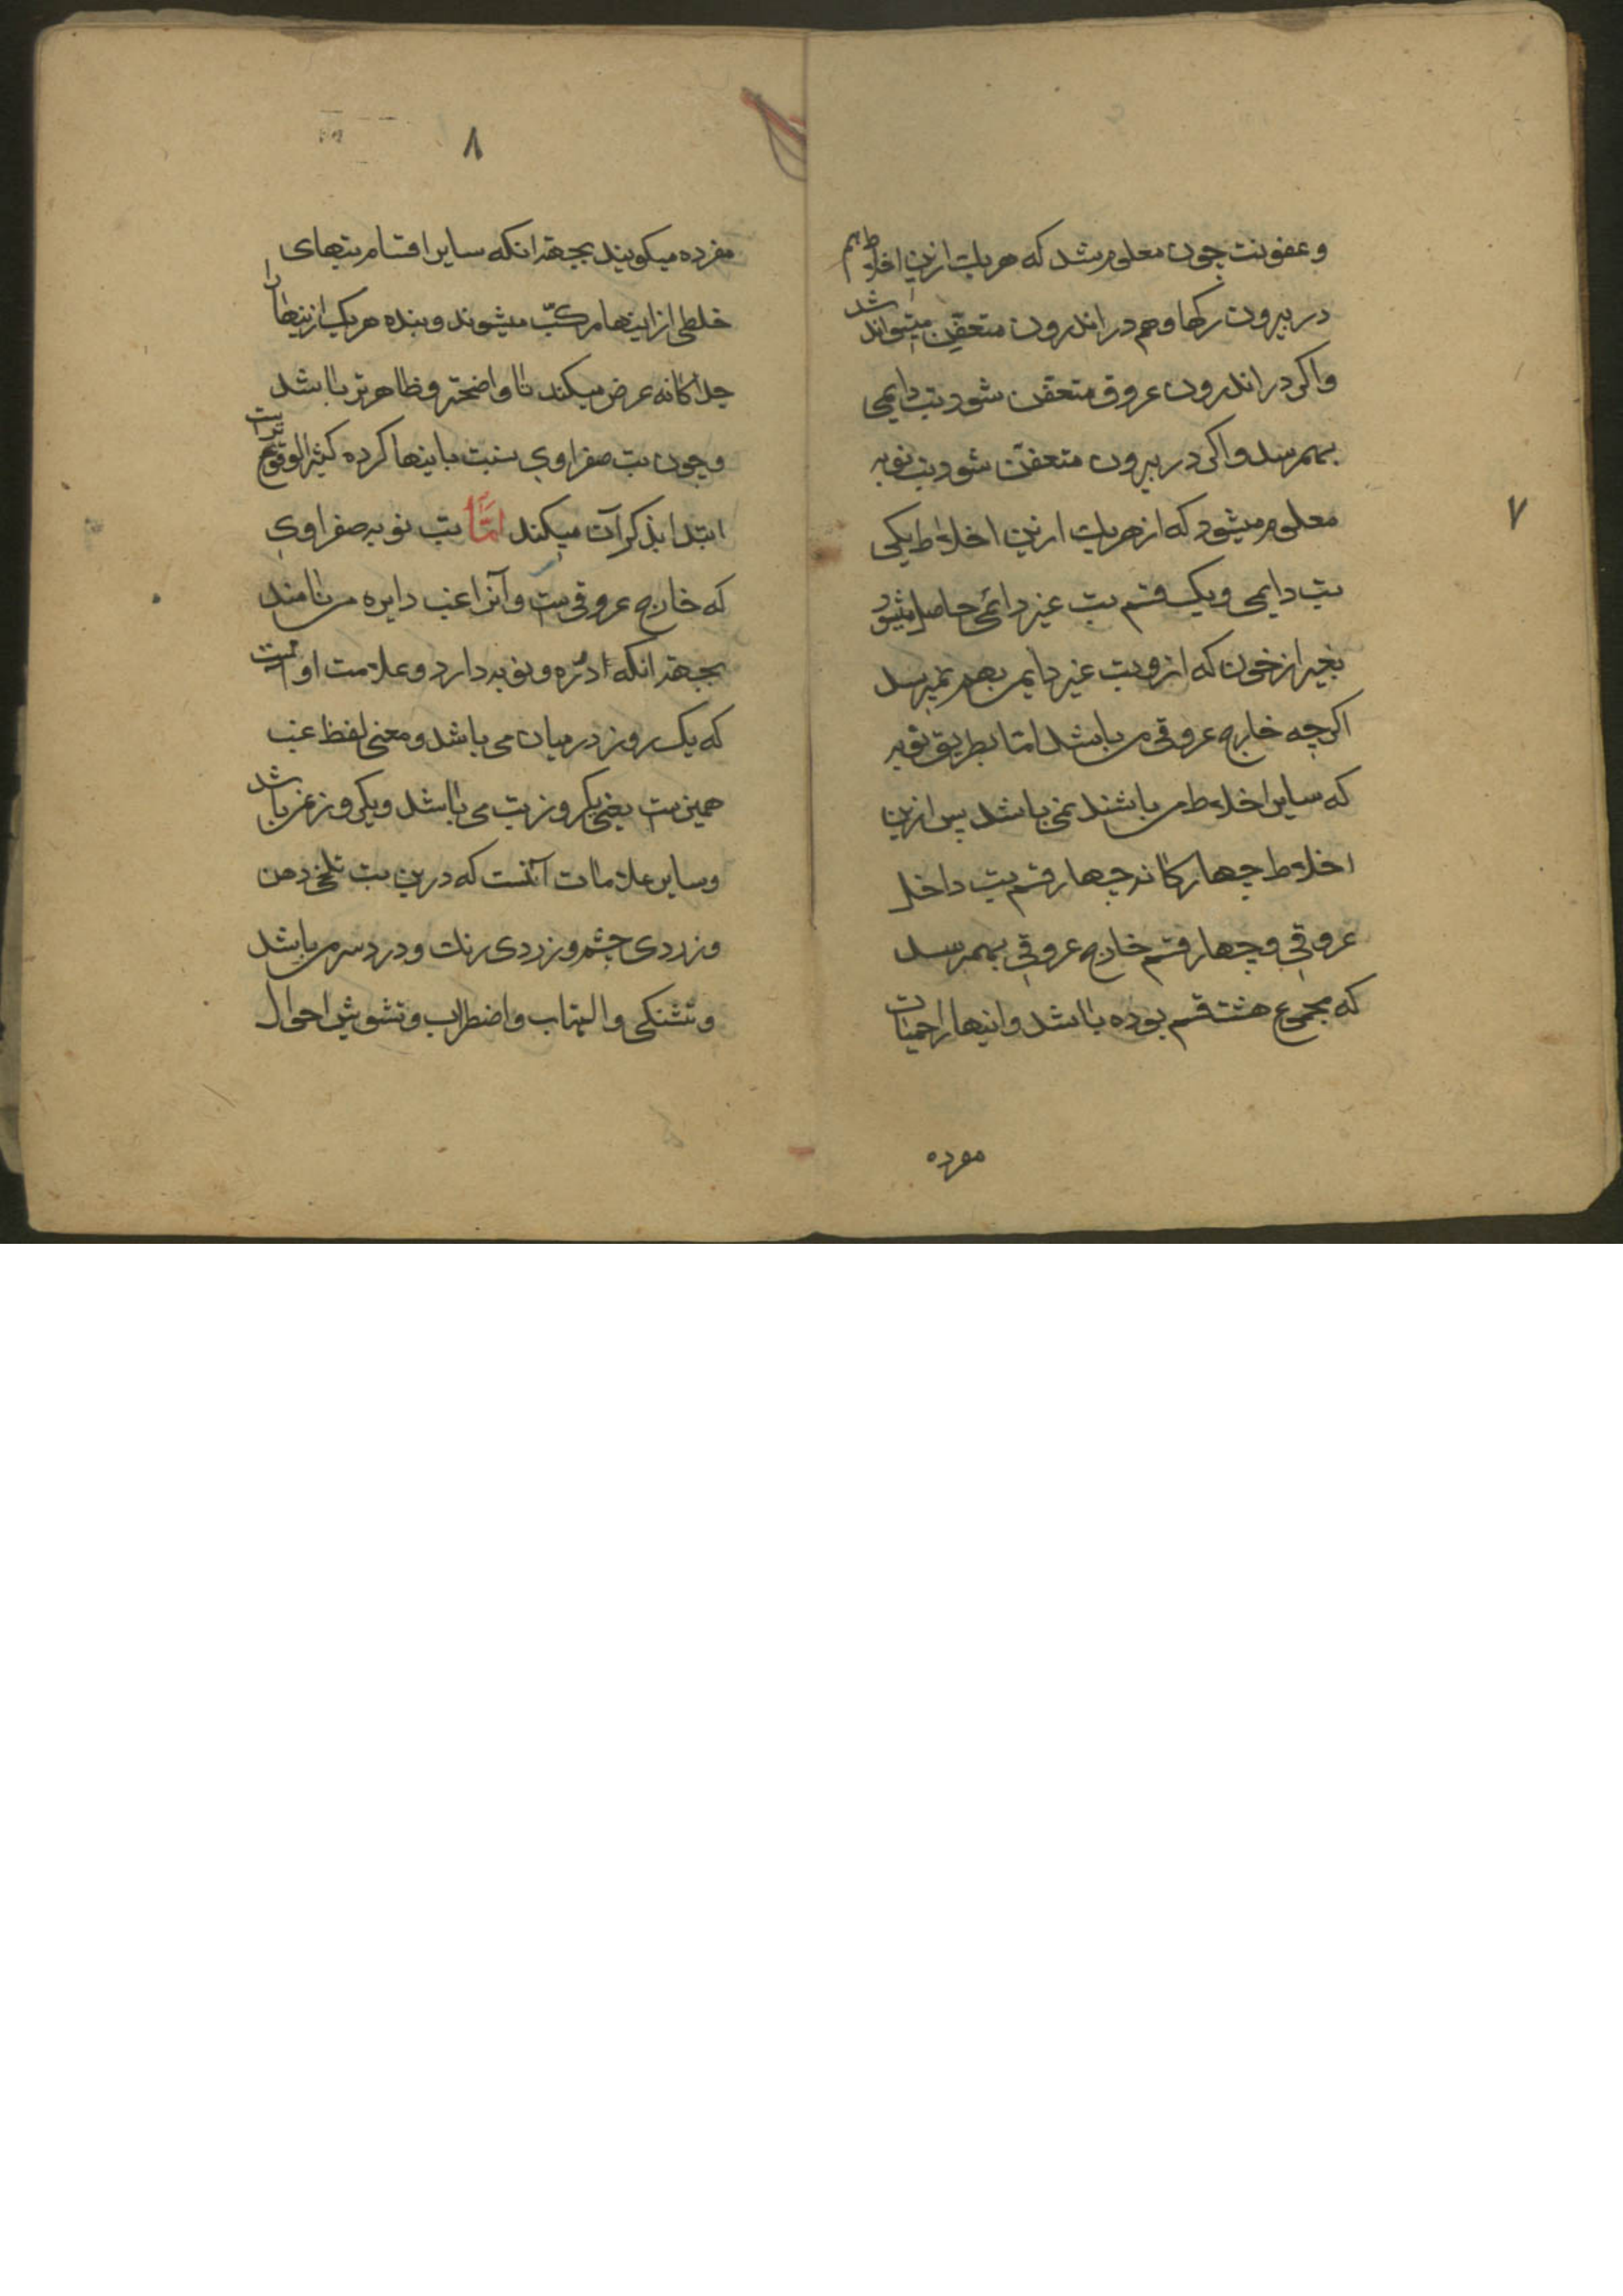 ۷
و عفونت چون معلوم شد که هر یک ازین اخلاط هم
در بیرون رکها و هم در اندرون متعفن میتواند شد
و اکر در اندرون عروق متعفن شود تب دایمی
بهمرسد و اکر در بیرون متعفن شود تب نوبه
معلوم میشود که از هر یک ازین اخلاط یکی
تب دایمی و یک قسم تب غیر دائمی حاصل میشود
بغیر از خون که ازو تب غیر دایمی بهم نمیرسد
اکرچه خارج عروقی می باشد اما بطریق نوبه
که سایر اخلاط می باشند نمی باشد پس ازین
اخلاط چهارکانه چهار قسم تب داخل
عروقی و چهار قسم خارج عروقی بهمرسد
که مجموع هشت قسم بوده باشد و اینها را حمیات
مفرده
۸
مفرده میکویند بجهة انکه سایر اقسام تبهای
خلطی از اینها مرکب میشوند و بنده هر یک ازینها را
جداکانه عرض میکند تا واضحتر و ظاهرتر باشد
و چون تب صفراوی نسبت باینها کرده کثیر الوقوع تر است
ابتدا بذکر آن میکند امّا تب نوبه صفراوی
که خارج عروقیست و آنرا غب دایره می نامند
بجهة انکه ادوره و نوبه دارد و علامت او آنست
که یک روز در میان می باشد و معنی لفظ غب
همین ست یعنی یکروز تب می باشد و یکروز نمی باشد
و سایر علامات آنست که درین تب تلخی دهن
و زردی چشم و زردی رنک و درد سر می باشد
و تشنکی و التهاب و اضطراب و تشویش احوال